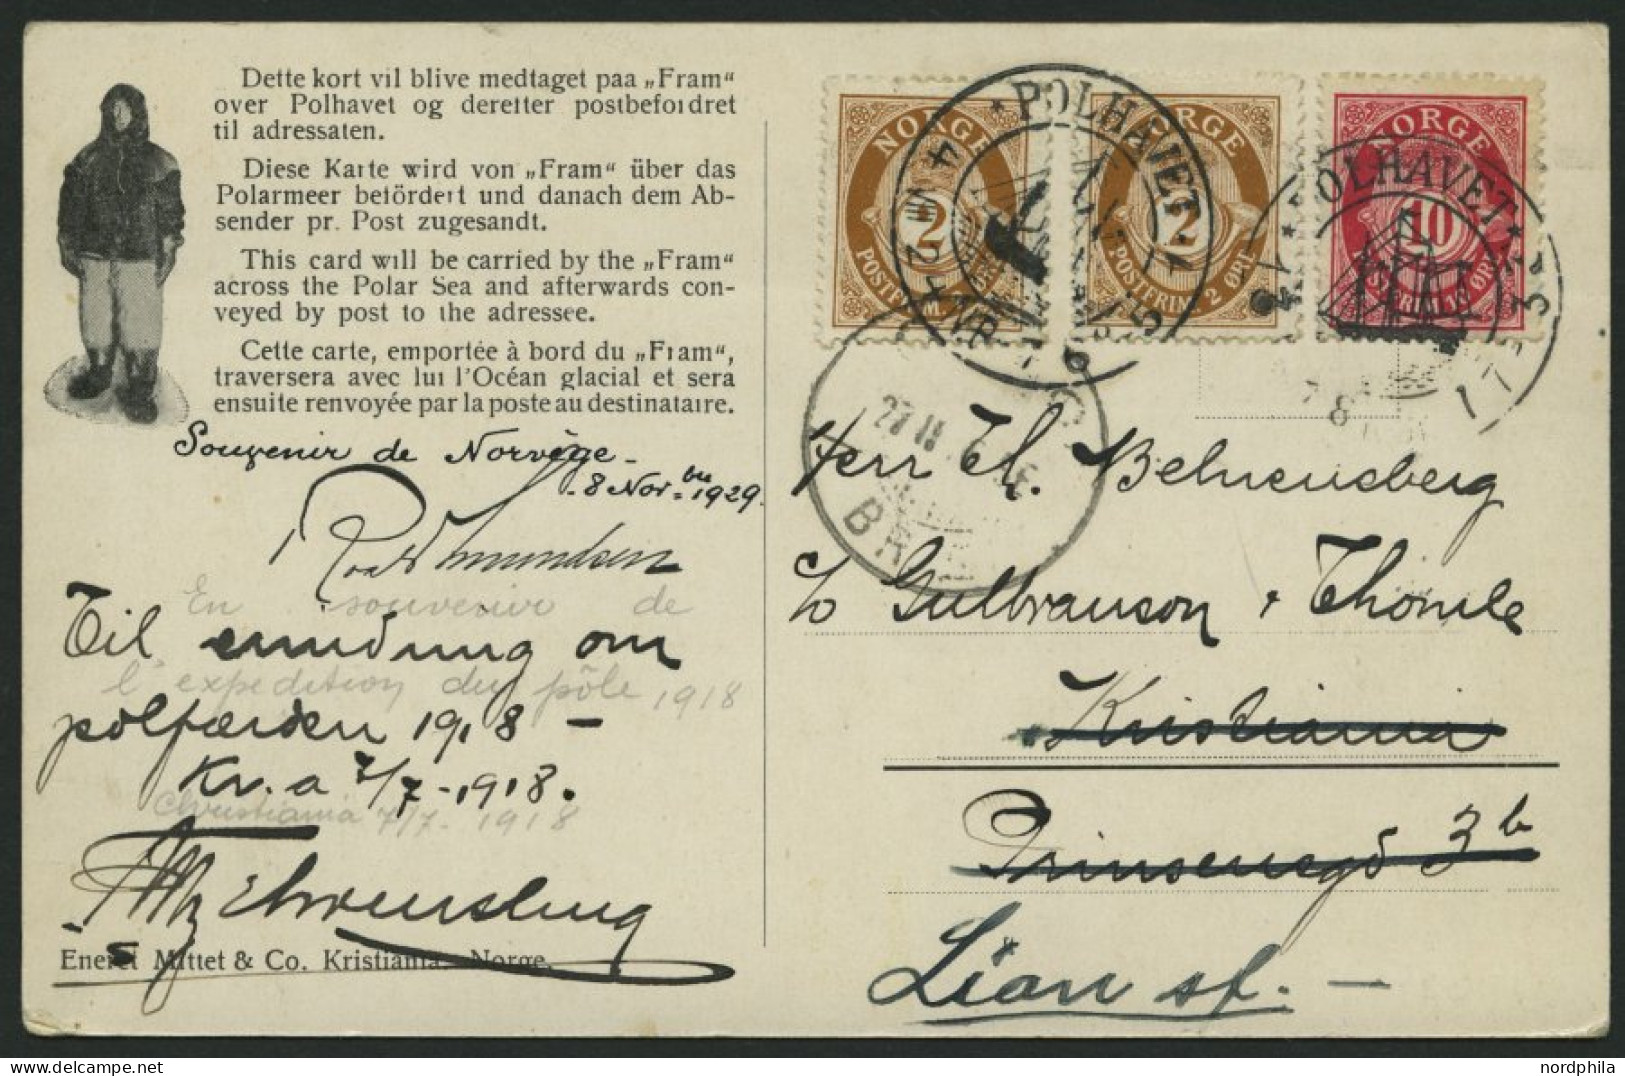 Dette kort vil blive medtaget paa „Fram“
over Polhavet og deretter postbefordret
til adressaten.
Diese Karte wird von „Fram“ über das
Polarmeer befördert und danach dem Ab-
sender pr. Post zugesandt.
This card will be carried by the „Fram“
across the Polar Sea and afterwards con-
veyed by post to the adressee.
Cette carte, emportée à bord du „Fram“,
traversera avec lui l'Océan glacial et sera
ensuite renvoyée par la poste au destinataire.
Souvenir de Norvège -
- 8 Nov.bre 1929.
Roald Amundsen
En souvenir de
Til erindring om
l'expedition du pôle 1918
polfærden 1918 –
Kr.a 7/7 - 1918.
Christiania 7/7. 1918
Eneret Mittet & Co. Kristiania. Norge.
NORGE
2
POSTFRIM. 2 ØRE
NORGE
2
POSTFRIM. 2 ØRE
NORGE
10
POSTFRIM. 10 ØRE
POLHAVET
POLHAVET
27 II
Herr Th. Behrensberg
c/o Gulbranson & Thomle
Kristiania
Prinsensgd 3b
Lian st. –
nordphila